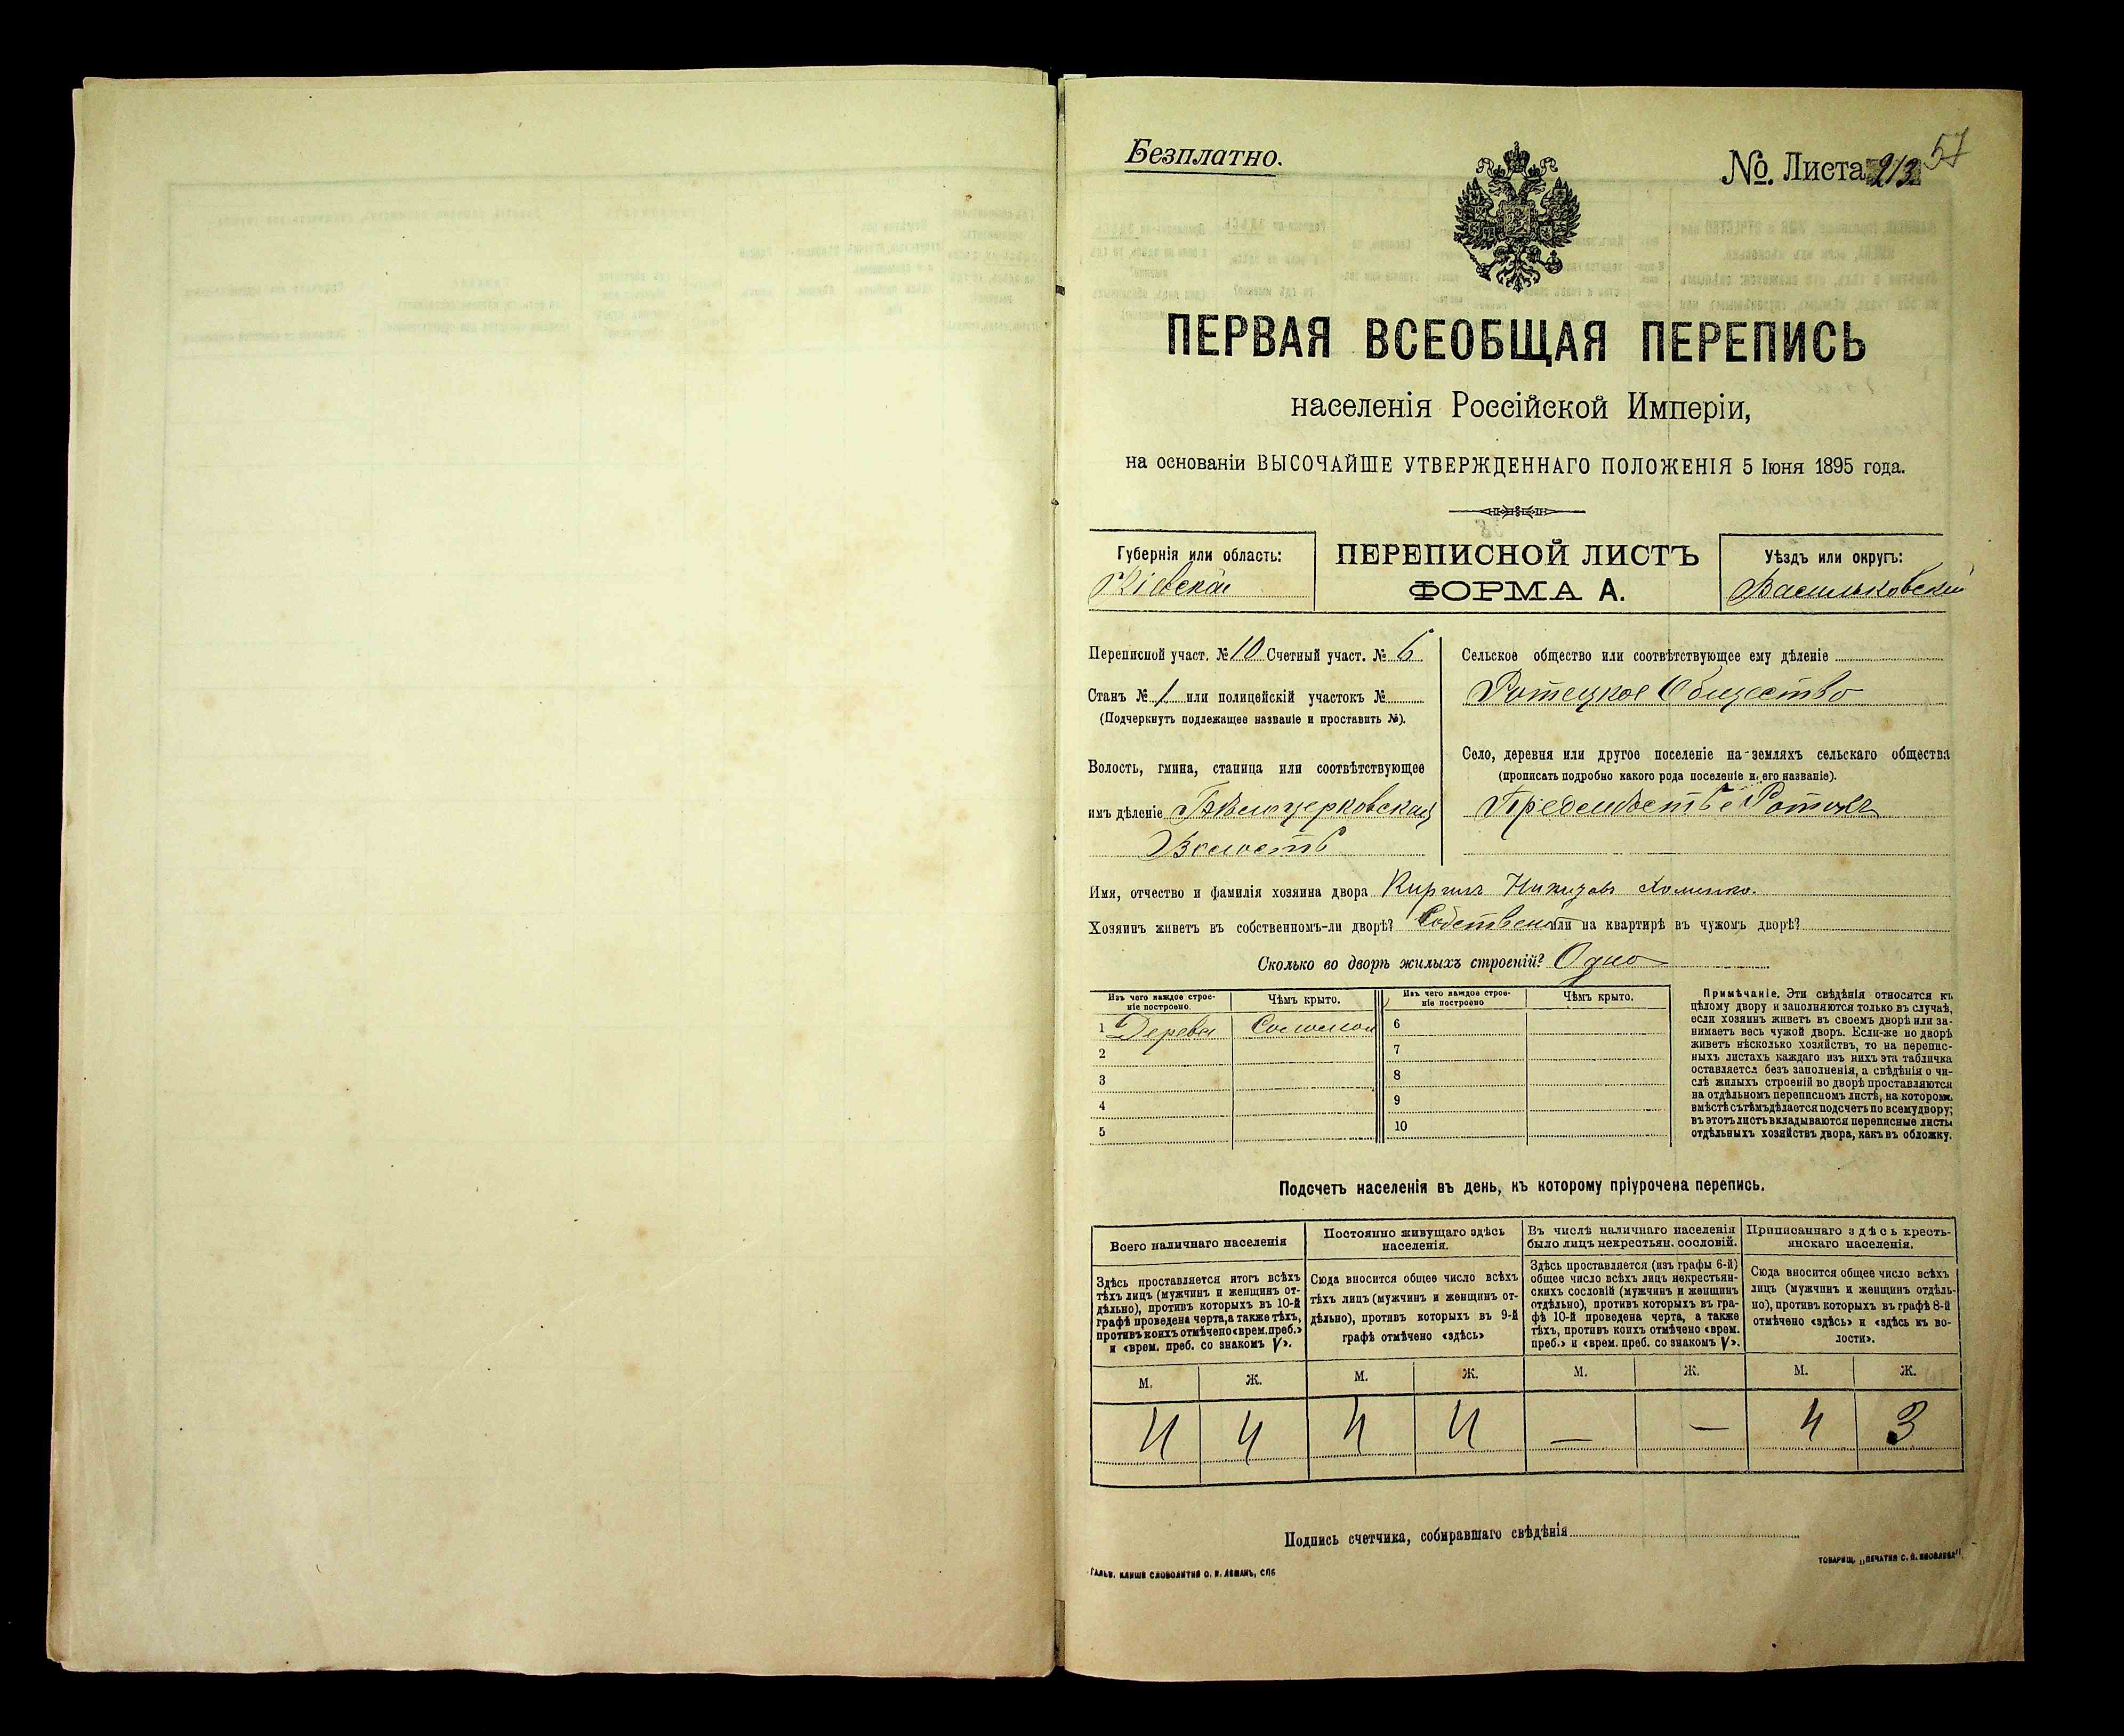 Безплатно.
№. Листа 213
57
ПЕРВАЯ ВСЕОБЩАЯ ПЕРЕПИСЬ
населенія Россійской Имперіи,
на основаніи ВЫСОЧАЙШЕ УТВЕРЖДЕННАГО ПОЛОЖЕНІЯ 5 Іюня 1895 года.
Губернія или область:
Кіевская
ПЕРЕПИСНОЙ ЛИСТЪ
ФОРМА А.
Уѣздъ или округъ:
Васильковский
Переписной участ. № 10 Счетный участ. № 6
Станъ № 1 или полицейскій участокъ №
(Подчеркнуть подлежащее названіе и проставить №).
Волость, гмина, станица или соотвѣтствующее
имъ дѣленіе Бѣлоцерковская
Волость
Сельское общество или соотвѣтствующее ему дѣленіе
Ротецкое Общество
Село, деревня или другое поселеніе на земляхъ сельскаго общества
(прописать подробно какого рода поселеніе и его названіе).
Предмѣстье Ротокъ
Имя, отчество и фамилія хозяина двора Кирилъ Хоменко.
Хозяинъ живетъ въ собственномъ-ли дворѣ? Собствено или на квартирѣ въ чужомъ дворѣ?
Сколько во дворѣ жилыхъ строеній? Одно
Изъ чего каждое строе-
ніе построено.
Чѣмъ крыто.
Изъ чего каждое строе-
ніе построено
Чѣмъ крыто.
1 Дерева Соломой
2
3
4
5
6
7
8
9
10
Примѣчаніе. Эти свѣдѣнія относятся къ
цѣлому двору и заполняются только въ случаѣ,
если хозяинъ живетъ въ своемъ дворѣ или за-
нимаетъ весь чужой дворъ. Если-же во дворѣ
живетъ нѣсколько хозяйствъ, то на перепис-
ныхъ листахъ каждаго изъ нихъ эта табличка
оставляется безъ заполненія, а свѣдѣнія о чи-
слѣ жилыхъ строеній во дворѣ проставляются
на отдѣльномъ переписномъ листѣ, на которомъ
вмѣстѣ съ тѣмъ дѣлается подсчетъ по всему двору;
въ этотъ листъ вкладываются переписные листы
отдѣльныхъ хозяйствъ двора, какъ въ обложку.
Подсчетъ населенія въ день, къ которому пріурочена перепись.
Всего наличнаго населенія
Здѣсь проставляется итогъ всѣхъ
тѣхъ лицъ (мужчинъ и женщинъ от-
дѣльно), противъ которыхъ въ 10-й
графѣ проведена черта, а также тѣхъ,
противъ коихъ отмѣчено «врем. преб.»
и «врем. преб. со знакомъ V».
Постоянно живущаго здѣсь
населенія.
Сюда вносится общее число всѣхъ
тѣхъ лицъ (мужчинъ и женщинъ от-
дѣльно), противъ которыхъ въ 9-й
графѣ отмѣчено «здѣсь»
Въ числѣ наличнаго населенія
было лицъ некрестьян. сословій.
Здѣсь проставляется (изъ графы 6-й)
общее число всѣхъ лицъ некрестьян-
скихъ сословій (мужчинъ и женщинъ
отдѣльно), противъ которыхъ въ гра-
фѣ 10-й проведена черта, а также
тѣхъ, противъ коихъ отмѣчено «врем.
преб.» и «врем. преб. со знакомъ V».
Приписаннаго здѣсь кресть-
янскаго населенія.
Сюда вносится общее число всѣхъ
лицъ (мужчинъ и женщинъ отдѣль-
но), противъ которыхъ въ графѣ 8-й
отмѣчено «здѣсь» и «здѣсь къ во-
лости».
М. Ж. М. Ж. М. Ж. М. Ж.
4 4 4 4 — — 4 3
Подпись счетчика, собиравшаго свѣдѣнія
ГАЛЬВ. КЛИШЕ СЛОВОЛИТНИ О. И. ЛЕМАНЪ, СПБ
ТОВАРИЩ. „ПЕЧАТНЯ С. П. ЯКОВЛЕВА“.